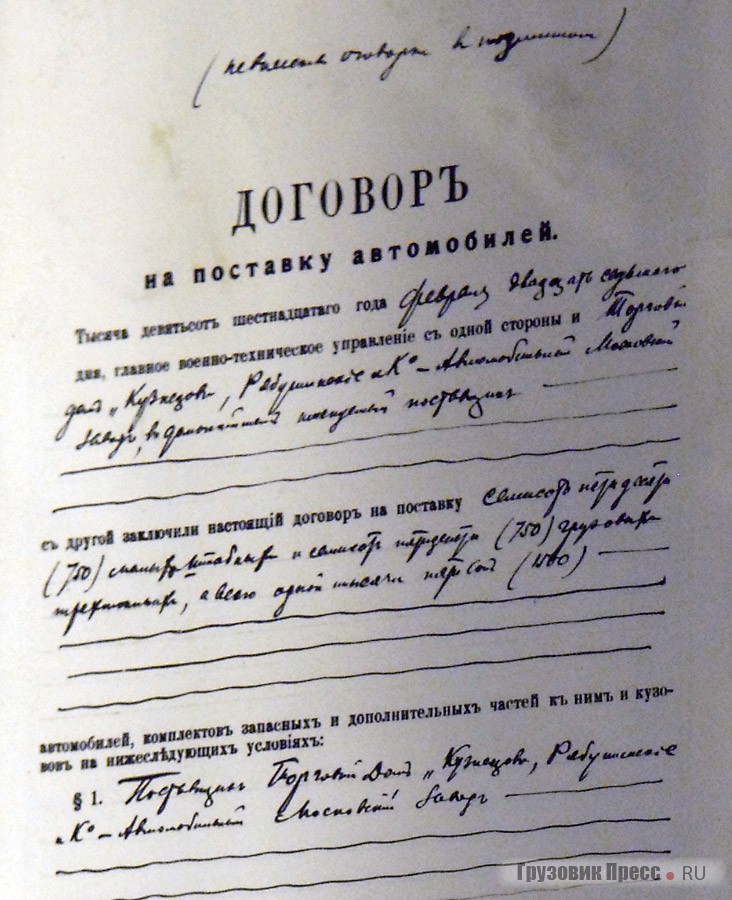 ДОГОВОРЪ
на поставку автомобилей.
Тысяча девятьсотъ шестнадцатаго года февраля двадцать седьмого
дня, главное военно-техническое управленіе съ одной стороны и Торговый
домъ „Кузнецовъ, Рябушинскіе и Ко – Автомобильный Московскій
заводъ, въ дальнѣйшемъ именуемый поставщикъ
съ другой заключили настоящій договоръ на поставку семисотъ пятидесяти
(750) штабныхъ и семисотъ пятидесяти (750) грузовыхъ
трехтонныхъ, а всего одной тысячи пятисотъ (1500)
автомобилей, комплектовъ запасныхъ и дополнительныхъ частей къ нимъ и кузо-
вовъ на нижеслѣдующихъ условіяхъ:
§ 1. Поставщикъ Торговый Домъ „Кузнецовъ, Рябушинскіе
и Ко – Автомобильный Московскій заводъ
Грузовик Пресс.RU